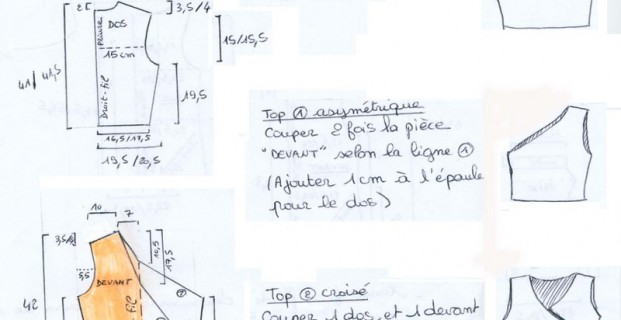 2
3,5/4
pliure
DOS
15 cm
15/15,5
41/41,5
Droit-fil
19,5
16,5/17,5
19,5/20,5
Top ① asymétrique
Couper 2 fois la pièce
"DEVANT" selon la ligne ①
(Ajouter 1 cm à l'épaule
pour le dos)
10
7
10,5
17,5
5,5
DEVANT
42
fil
Top ② croisé
Couper 1 dos et 1 devant